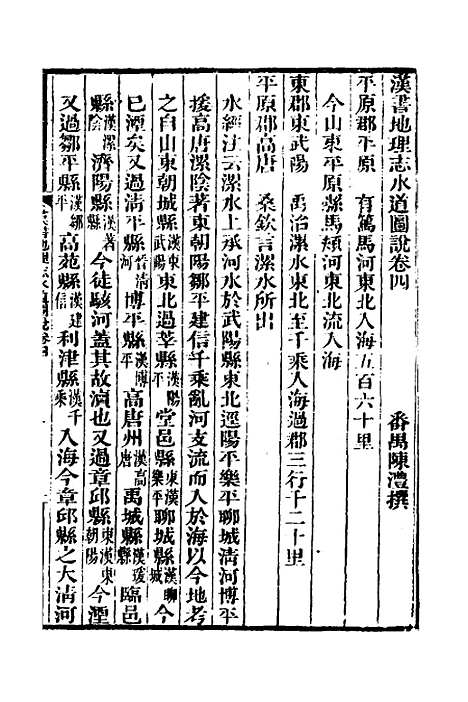 漢書地理志水道圖說卷四
番禺陳澧撰
平原郡平原　有篤馬河東北入海五百六十里
今山東平原縣馬頰河東北流入海
東郡東武陽　禹治漯水東北至千乘入海過郡三行千二十里
平原郡高唐　桑欽言漯水所出
水經注云漯水上承河水於武陽縣東北逕陽平樂平聊城清河博平
援高唐漯陰著東朝陽鄒平建信千乘亂河支流而入於海以今地考
之自山東朝城縣漢東武陽東北過莘縣漢陽平堂邑縣東漢樂平聊城縣漢聊城今
已湮矣又過清平縣晉清河博平縣漢博平高唐州漢高唐禹城縣漢瑗縣臨邑
縣漢漯陰濟陽縣漢著縣今徒駭河蓋其故瀆也又過章邱縣東漢東朝陽今湮
又過鄒平縣漢鄒平高苑縣漢建信利津縣漢千乘入海今章邱縣之大清河